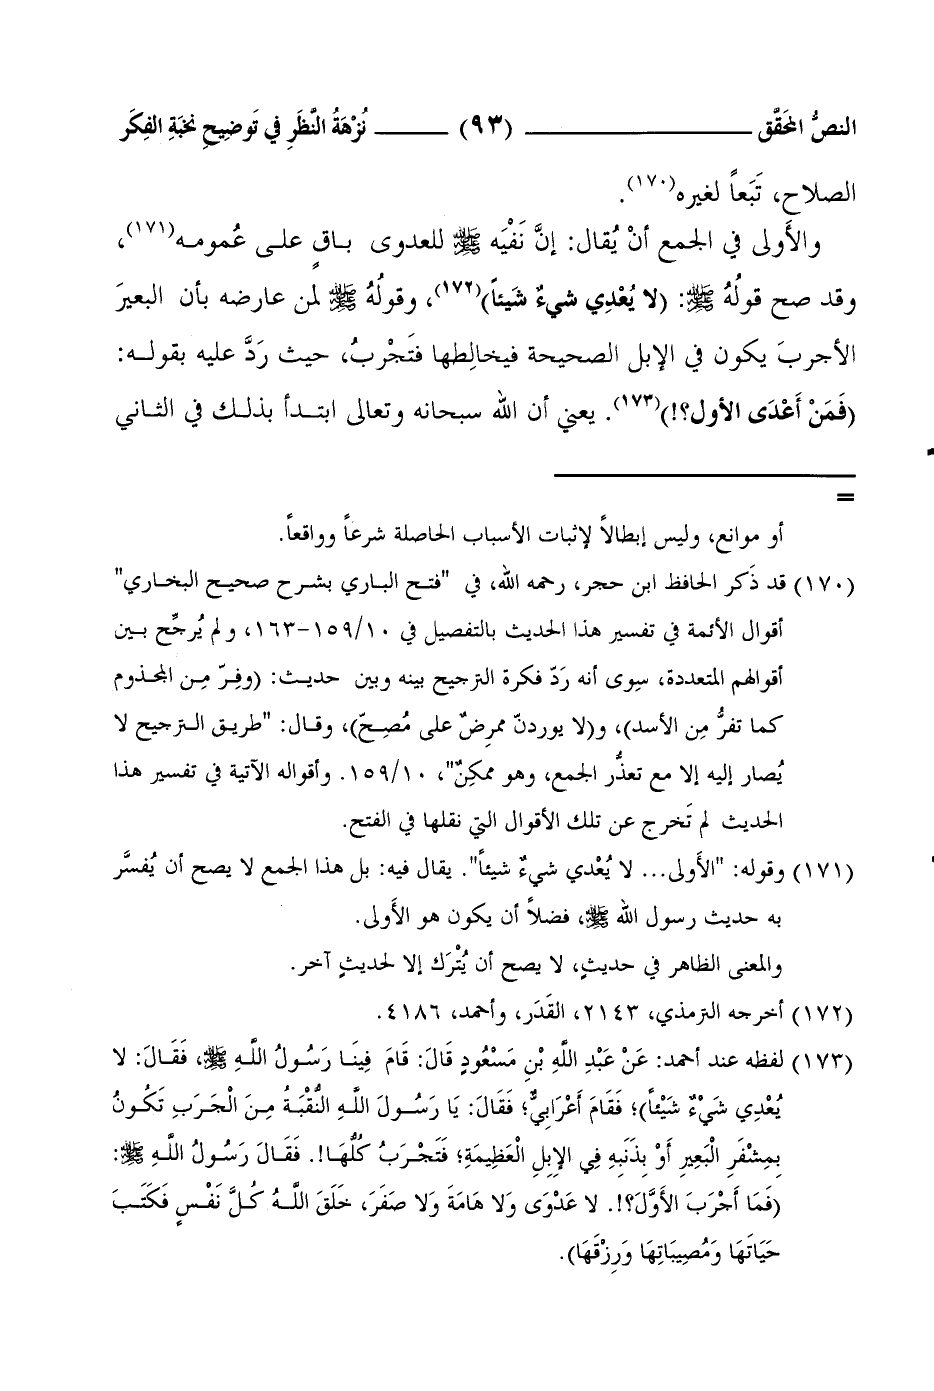 النصُّ المحَقَّق ــــــــــــ (٩٣) ــــــــــــ نُزْهَةُ النَّظَرِ في تَوضِيحِ نخبَةِ الفِكَر
الصلاح، تَبَعاً لغيره(١٧٠).
والأَولى في الجمع أنْ يُقال: إنَّ نَفْيَه ﷺ للعدوى باقٍ على عُمومه(١٧١)،
وقد صح قولُهُ ﷺ: (لا يُعْدِي شيءٌ شَيئاً)(١٧٢)، وقولُهُ ﷺ لمن عارضه بأن البعيرَ
الأجربَ يكون في الإبل الصحيحة فيخالِطها فتَجْربُ، حيث رَدَّ عليه بقوله:
(فَمَنْ أَعْدَى الأول؟!)(١٧٣). يعني أن الله سبحانه وتعالى ابتدأ بذلك في الثاني
=
أو موانع، وليس إبطالاً لإثبات الأسباب الحاصلة شرعاً وواقعاً.
(١٧٠) قد ذَكر الحافظ ابن حجر، رحمه الله، في "فتح الباري بشرح صحيح البخاري"
أقوال الأئمة في تفسير هذا الحديث بالتفصيل في ١٠/١٥٩-١٦٣، ولم يُرجِّح بين
أقوالهم المتعددة، سِوى أنه رَدّ فكرة الترجيح بينه وبين حديث: (وفِرّ مِن المجذوم
كما تفرُّ مِن الأسد)، و(لا يوردنّ ممرِضٌ على مُصِحّ)، وقال: "طريق الترجيح لا
يُصار إليه إلا مع تعذُّر الجمع، وهو ممكِنٌ"، ١٠/١٥٩. وأقواله الآتية في تفسير هذا
الحديث لم تَخرج عن تلك الأقوال التي نقلها في الفتح.
(١٧١) وقوله: "الأَولى... لا يُعْدي شيءٌ شيئاً". يقال فيه: بل هذا الجمع لا يصح أن يُفسَّر
به حديث رسول الله ﷺ، فضلاً أن يكون هو الأَولى.
والمعنى الظاهر في حديثٍ، لا يصح أن يُتْرَك إلا لحديثٍ آخر.
(١٧٢) أخرجه الترمذي، ٢١٤٣، القَدَر، وأحمد، ٤١٨٦.
(١٧٣) لفظه عند أحمد: عَنْ عَبْدِ اللَّهِ بْنِ مَسْعُودٍ قَالَ: قَامَ فِينَا رَسُولُ اللَّهِ ﷺ، فَقَالَ: لا
يُعْدِي شَيْءٌ شَيْئاً)؛ فَقَامَ أَعْرَابِيٌّ؛ فقَالَ: يَا رَسُولَ اللَّهِ النُّقْبَةُ مِنَ الْجَرَبِ تَكُونُ
بِمِشْفَرِ الْبَعِيرِ أَوْ بِذَنَبِهِ فِي الإِبِلِ الْعَظِيمَةِ؛ فَتَجْرَبُ كُلُّهَا!. فَقَالَ رَسُولُ اللَّهِ ﷺ:
(فَمَا أَجْرَبَ الأَوَّلَ؟!. لا عَدْوَى وَلا هَامَةَ وَلا صَفَرَ، خَلَقَ اللَّهُ كُلَّ نَفْسٍ فَكَتَبَ
حَيَاتَهَا وَمُصِيبَاتِهَا وَرِزْقَهَا).